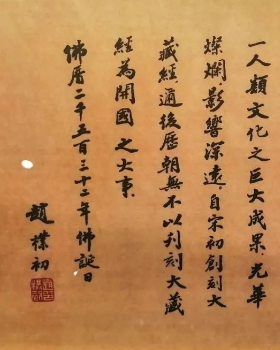 一人類文化之巨大成果光華
燦爛影響深遠自宋初創刻大
藏經通後歷朝無不以刋刻大藏
經為開國之大事
佛曆二千五百三十二年佛誕日
趙樸初